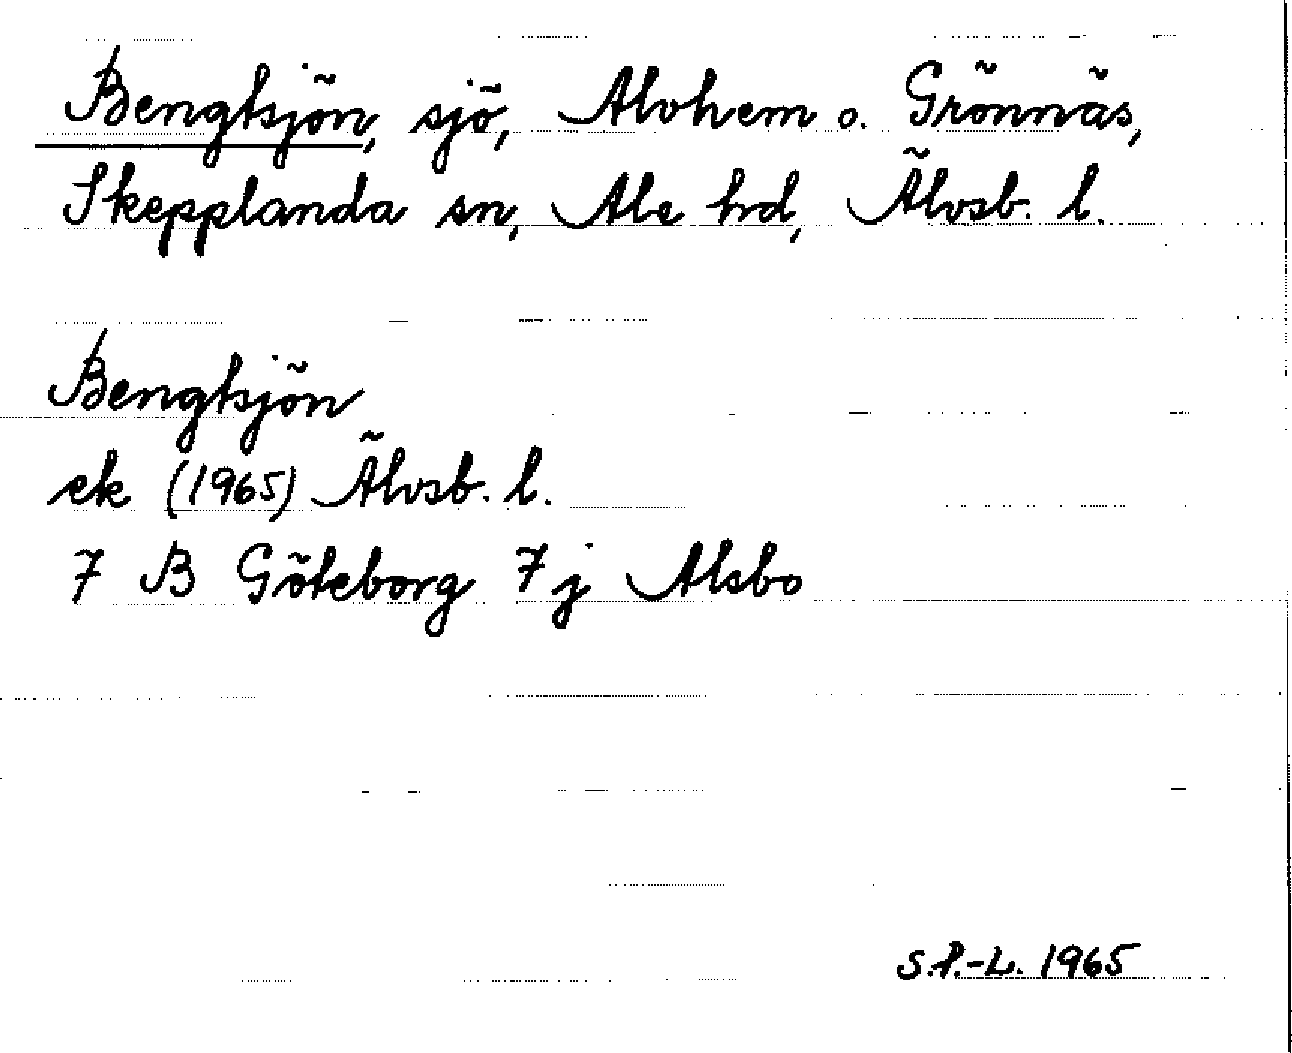 Bengtsjön, sjö, Alvhem o. Grönnäs,
Skepplanda sn, Ale hrd, Älvsb. l.
Bengtsjön
ek (1965) Älvsb. l.
7 B Göteborg 7 j Alsbo
S.P.-L. 1965